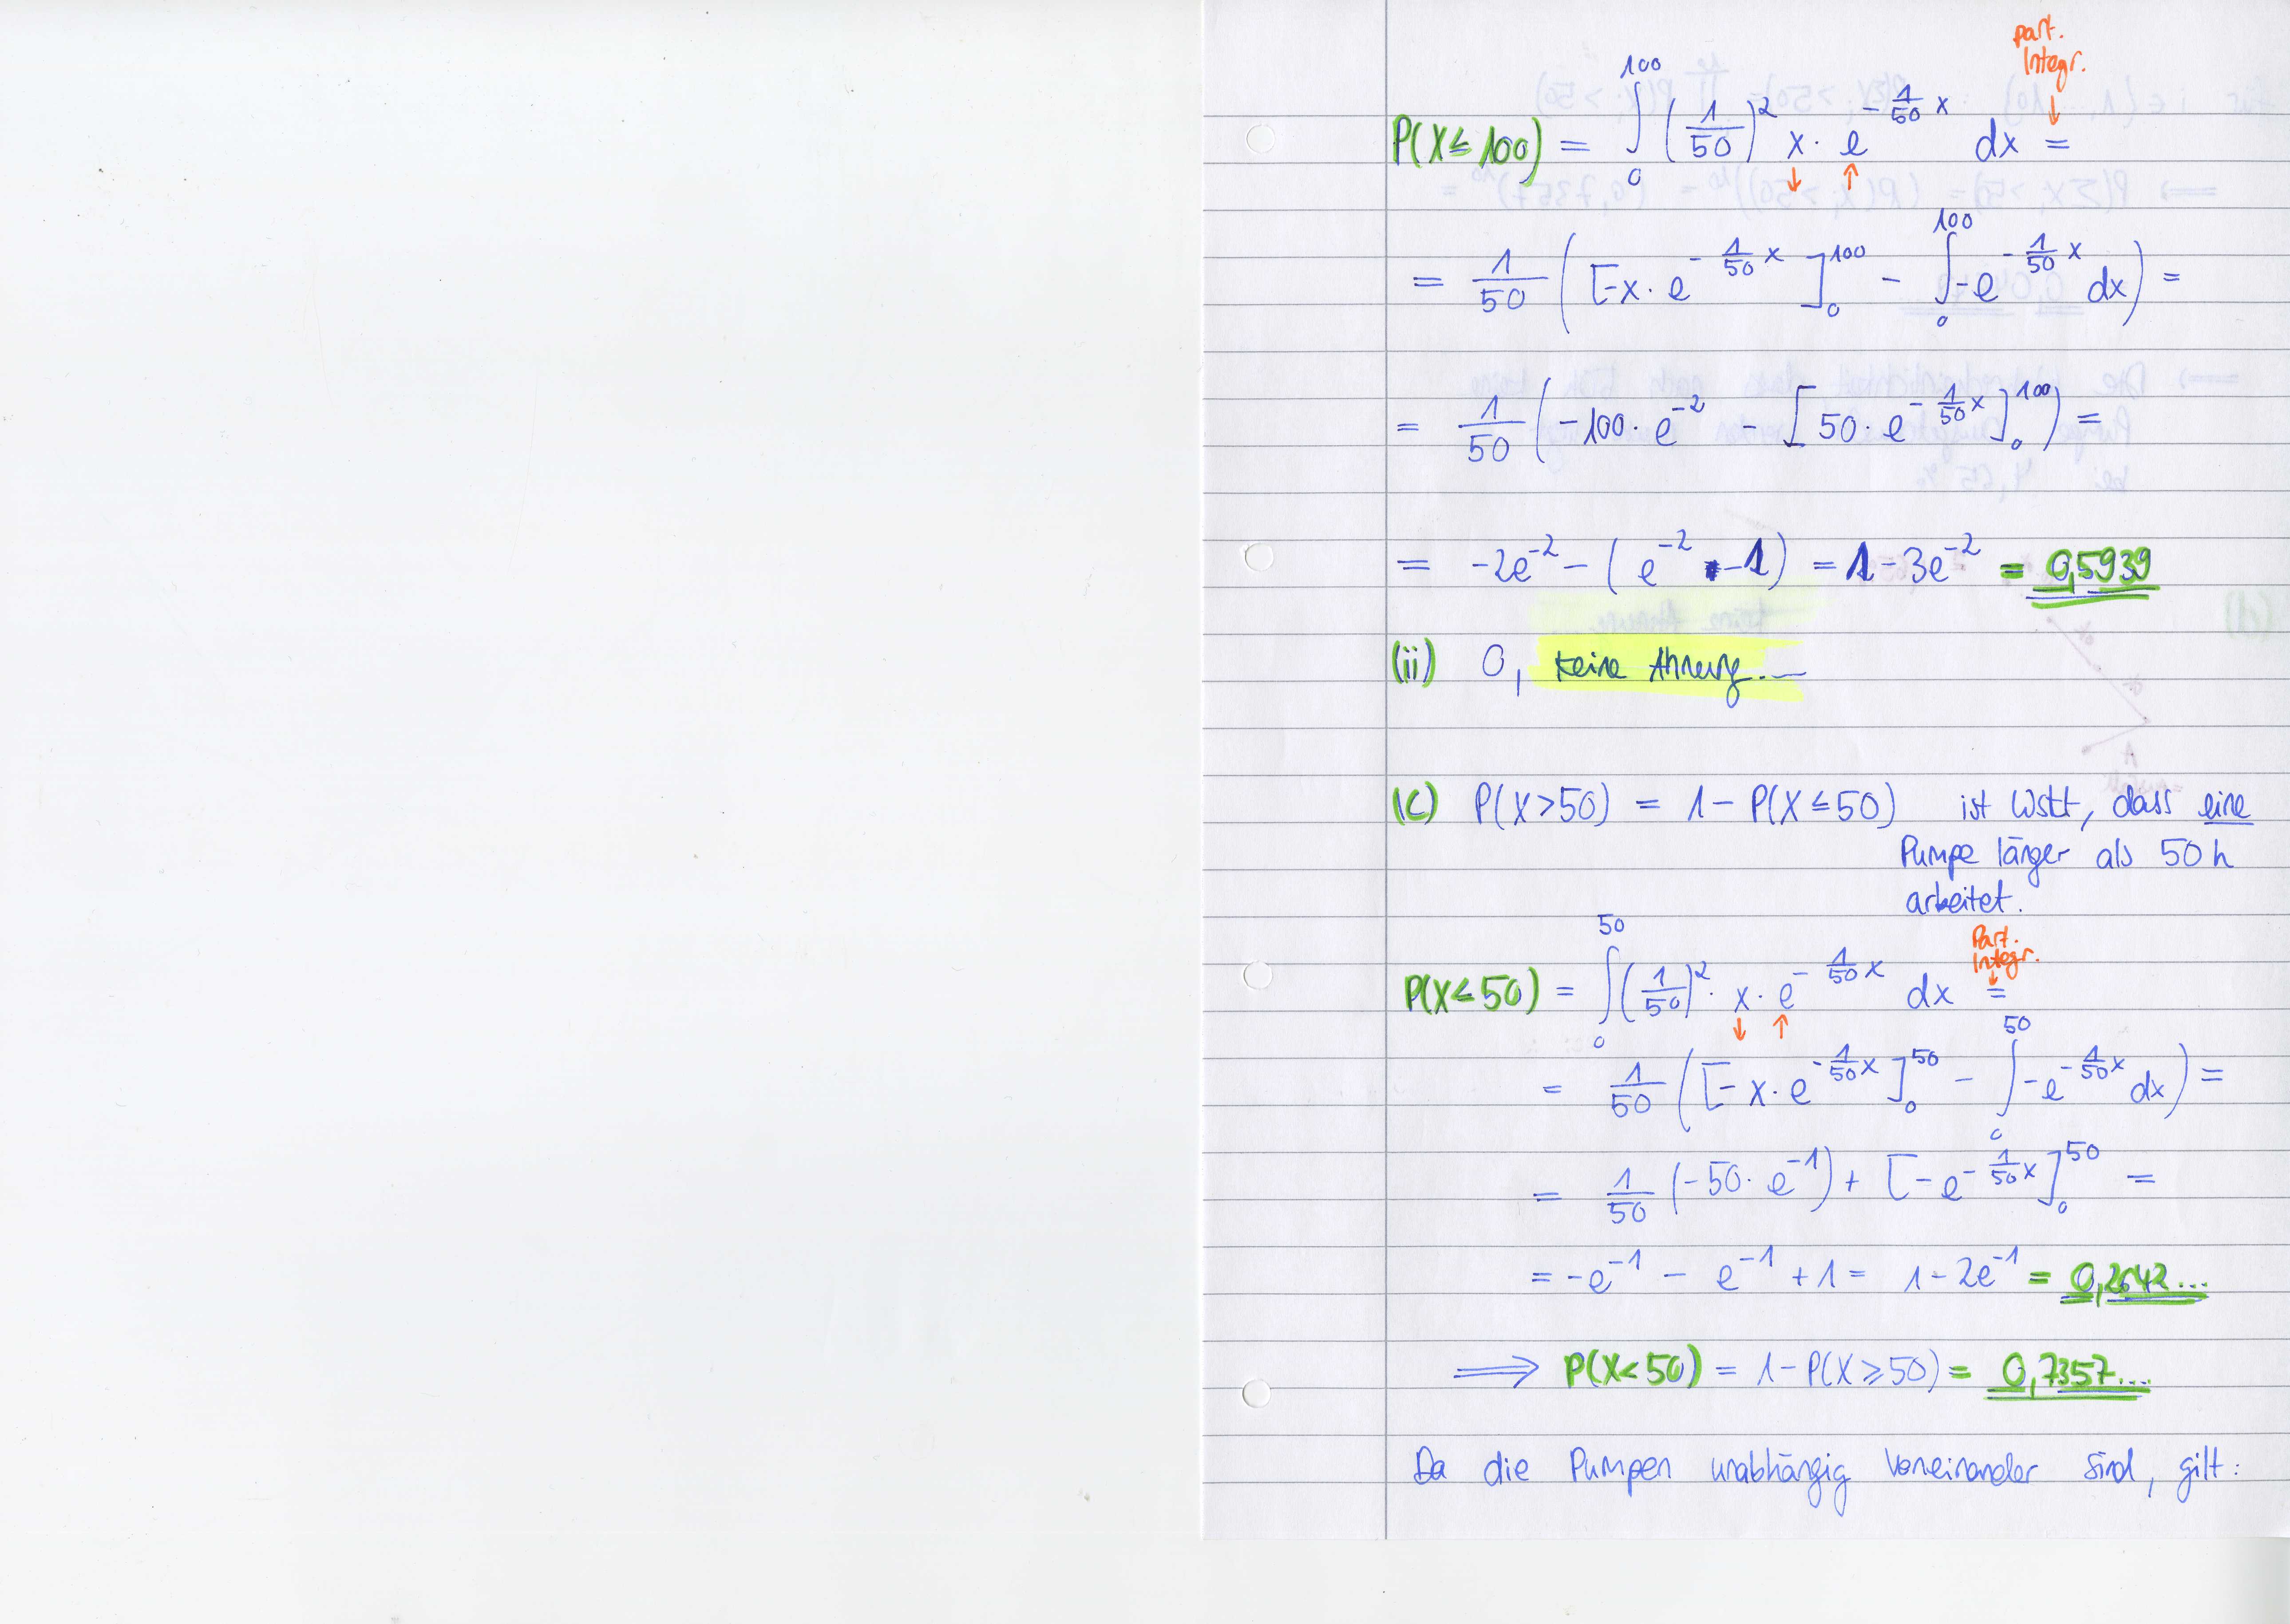 part.
Integr.
P(X ≤ 100) = ∫₀¹⁰⁰ (1/50)² x · e^(-1/50 x) dx =
= 1/50 ( [-x · e^(-1/50 x)]₀¹⁰⁰ - ∫₀¹⁰⁰ -e^(-1/50 x) dx ) =
= 1/50 ( -100 · e^(-2) - [50 · e^(-1/50 x)]₀¹⁰⁰ ) =
= -2e^(-2) - ( e^(-2) - 1 ) = 1 - 3e^(-2) = 0,5939
(ii) 0, keine Ahnung...
(c) P(X > 50) = 1 - P(X ≤ 50) ist Wstt, dass eine
Pumpe länger als 50 h
arbeitet.
Part.
Integr.
P(X ≤ 50) = ∫₀⁵⁰ (1/50)² · x · e^(-1/50 x) dx =
= 1/50 ( [-x · e^(-1/50 x)]₀⁵⁰ - ∫₀⁵⁰ -e^(-1/50 x) dx ) =
= 1/50 (-50 · e^(-1)) + [-e^(-1/50 x)]₀⁵⁰ =
= -e^(-1) - e^(-1) + 1 = 1 - 2e^(-1) = 0,2642...
⟹ P(X < 50) = 1 - P(X ≥ 50) = 0,7357...
Da die Pumpen unabhängig voneinander sind, gilt: